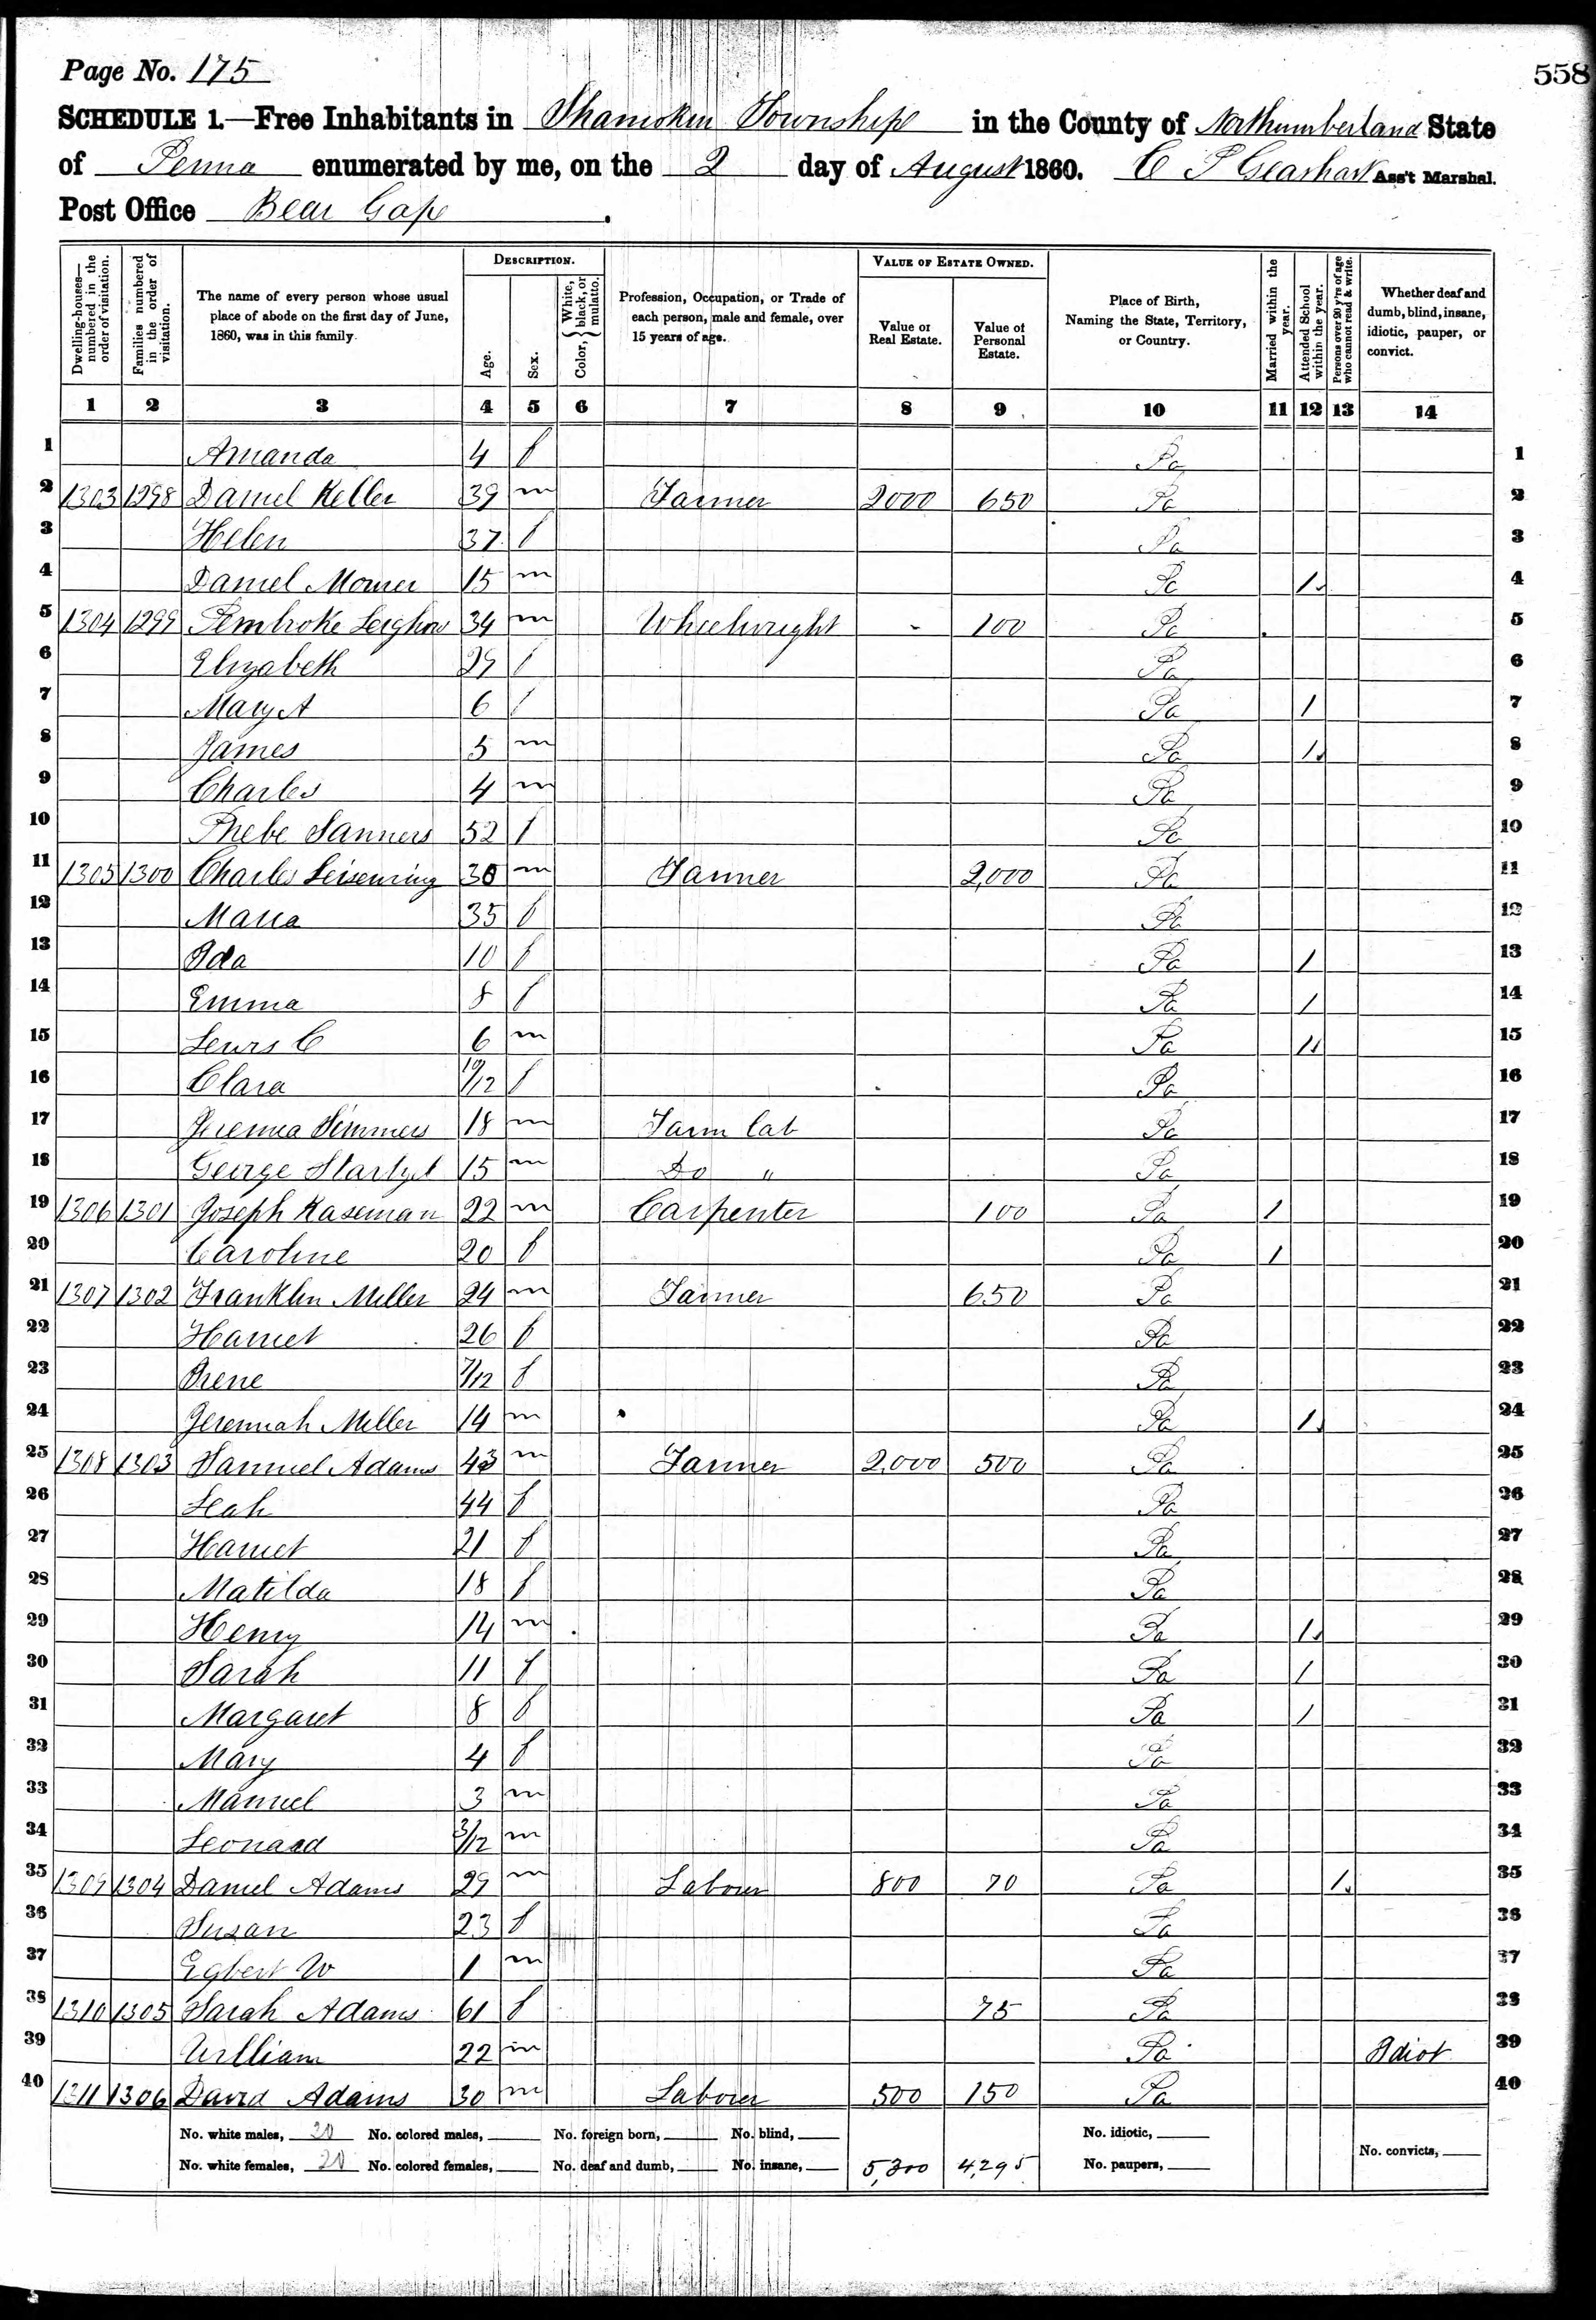 Page No. 175
558
SCHEDULE 1.—Free Inhabitants in Shamokin Township in the County of Northumberland State
of Penna enumerated by me, on the 2 day of August 1860. C P Gearhart Ass't Marshal.
Post Office Bear Gap.
Dwelling-houses—numbered in the order of visitation. Families numbered in the order of visitation. The name of every person whose usual place of abode on the first day of June, 1860, was in this family. DESCRIPTION. Age. Sex. Color, White, black, or mulatto. Profession, Occupation, or Trade of each person, male and female, over 15 years of age. VALUE OF ESTATE OWNED. Value of Real Estate. Value of Personal Estate. Place of Birth, Naming the State, Territory, or Country. Married within the year. Attended School within the year. Persons over 20 y'rs of age who cannot read & write. Whether deaf and dumb, blind, insane, idiotic, pauper, or convict.
1 2 3 4 5 6 7 8 9 10 11 12 13 14
1 Amanda 4 f Pa 1
2 1303 1298 Daniel Keller 39 m Farmer 2000 650 Pa 2
3 Helen 37 f Pa 3
4 Daniel 15 m Pa 1 4
5 1304 1299 Pembroke Leighow 34 m Wheelwright - 100 Pa 5
6 Elizabeth 29 f Pa 6
7 Mary A 6 f Pa 1 7
8 James 5 m Pa 1 8
9 Charles 4 m Pa 9
10 Phebe Sanners 52 f Pa 10
11 1305 1300 Charles Leisenring 30 m Farmer 2,000 Pa 11
12 Maria 35 f Pa 12
13 Ida 10 f Pa 1 13
14 Emma 8 f Pa 1 14
15 Lewis C 6 m Pa 1 15
16 Clara 10/12 f Pa 16
17 Jeremia Simmers 18 m Farm Lab Pa 17
18 George 15 m Do " Pa 18
19 1306 1301 Joseph Kaseman 22 m Carpenter 100 Pa 1 19
20 Caroline 20 f Pa 1 20
21 1307 1302 Franklin Miller 24 m Farmer 650 Pa 21
22 Harriet 26 f Pa 22
23 Irene 7/12 f Pa 23
24 Jeremiah Miller 14 m Pa 1 24
25 1308 1303 Samuel Adams 43 m Farmer 2,000 500 Pa 25
26 Leah 44 f Pa 26
27 Harriet 21 f Pa 27
28 Matilda 18 f Pa 28
29 Henry 14 m Pa 1 29
30 Sarah 11 f Pa 1 30
31 Margaret 8 f Pa 1 31
32 Mary 4 f Pa 32
33 Manuel 3 m Pa 33
34 Leonard 3/12 m Pa 34
35 1309 1304 Daniel Adams 29 m Labourer 800 70 Pa 1 35
36 Susan 23 f Pa 36
37 Egbert W 1 m Pa 37
38 1310 1305 Sarah Adams 61 f 75 Pa 38
39 William 22 m Pa Idiot 39
40 1311 1306 David Adams 30 m Labourer 500 150 Pa 40
No. white males, 20 No. colored males, No. foreign born, No. blind, No. idiotic,
No. white females, 20 No. colored females, No. deaf and dumb, No. insane, 5,300 4,295 No. paupers, No. convicts,